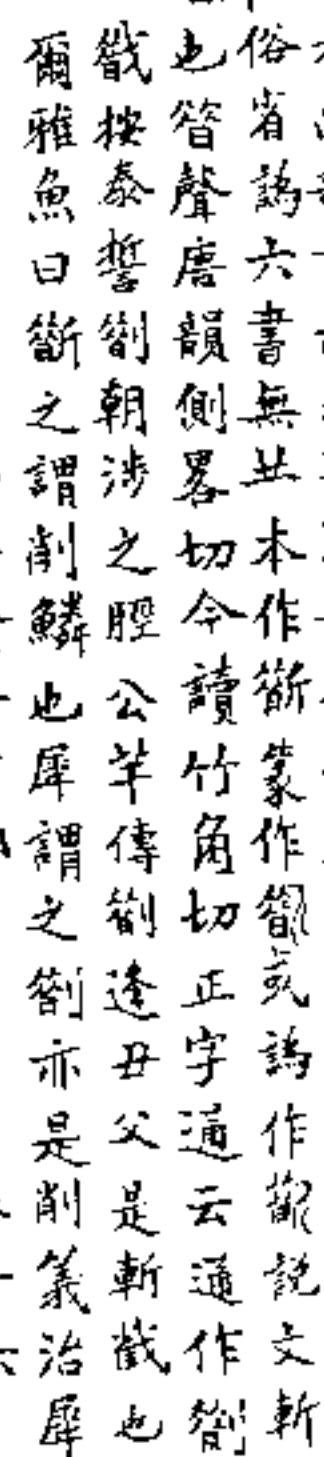 俗省譌六書無此本作斮篆作𣃈或譌作𣃈說文斬
也䇾聲唐韻側畧切今讀竹角切正字通云通作劄
𢧵按泰誓劄朝涉之脛公羊傳劄逢丑父是斬𢧵也
爾雅魚曰斮之謂削鱗也犀謂之劄亦是削義治犀